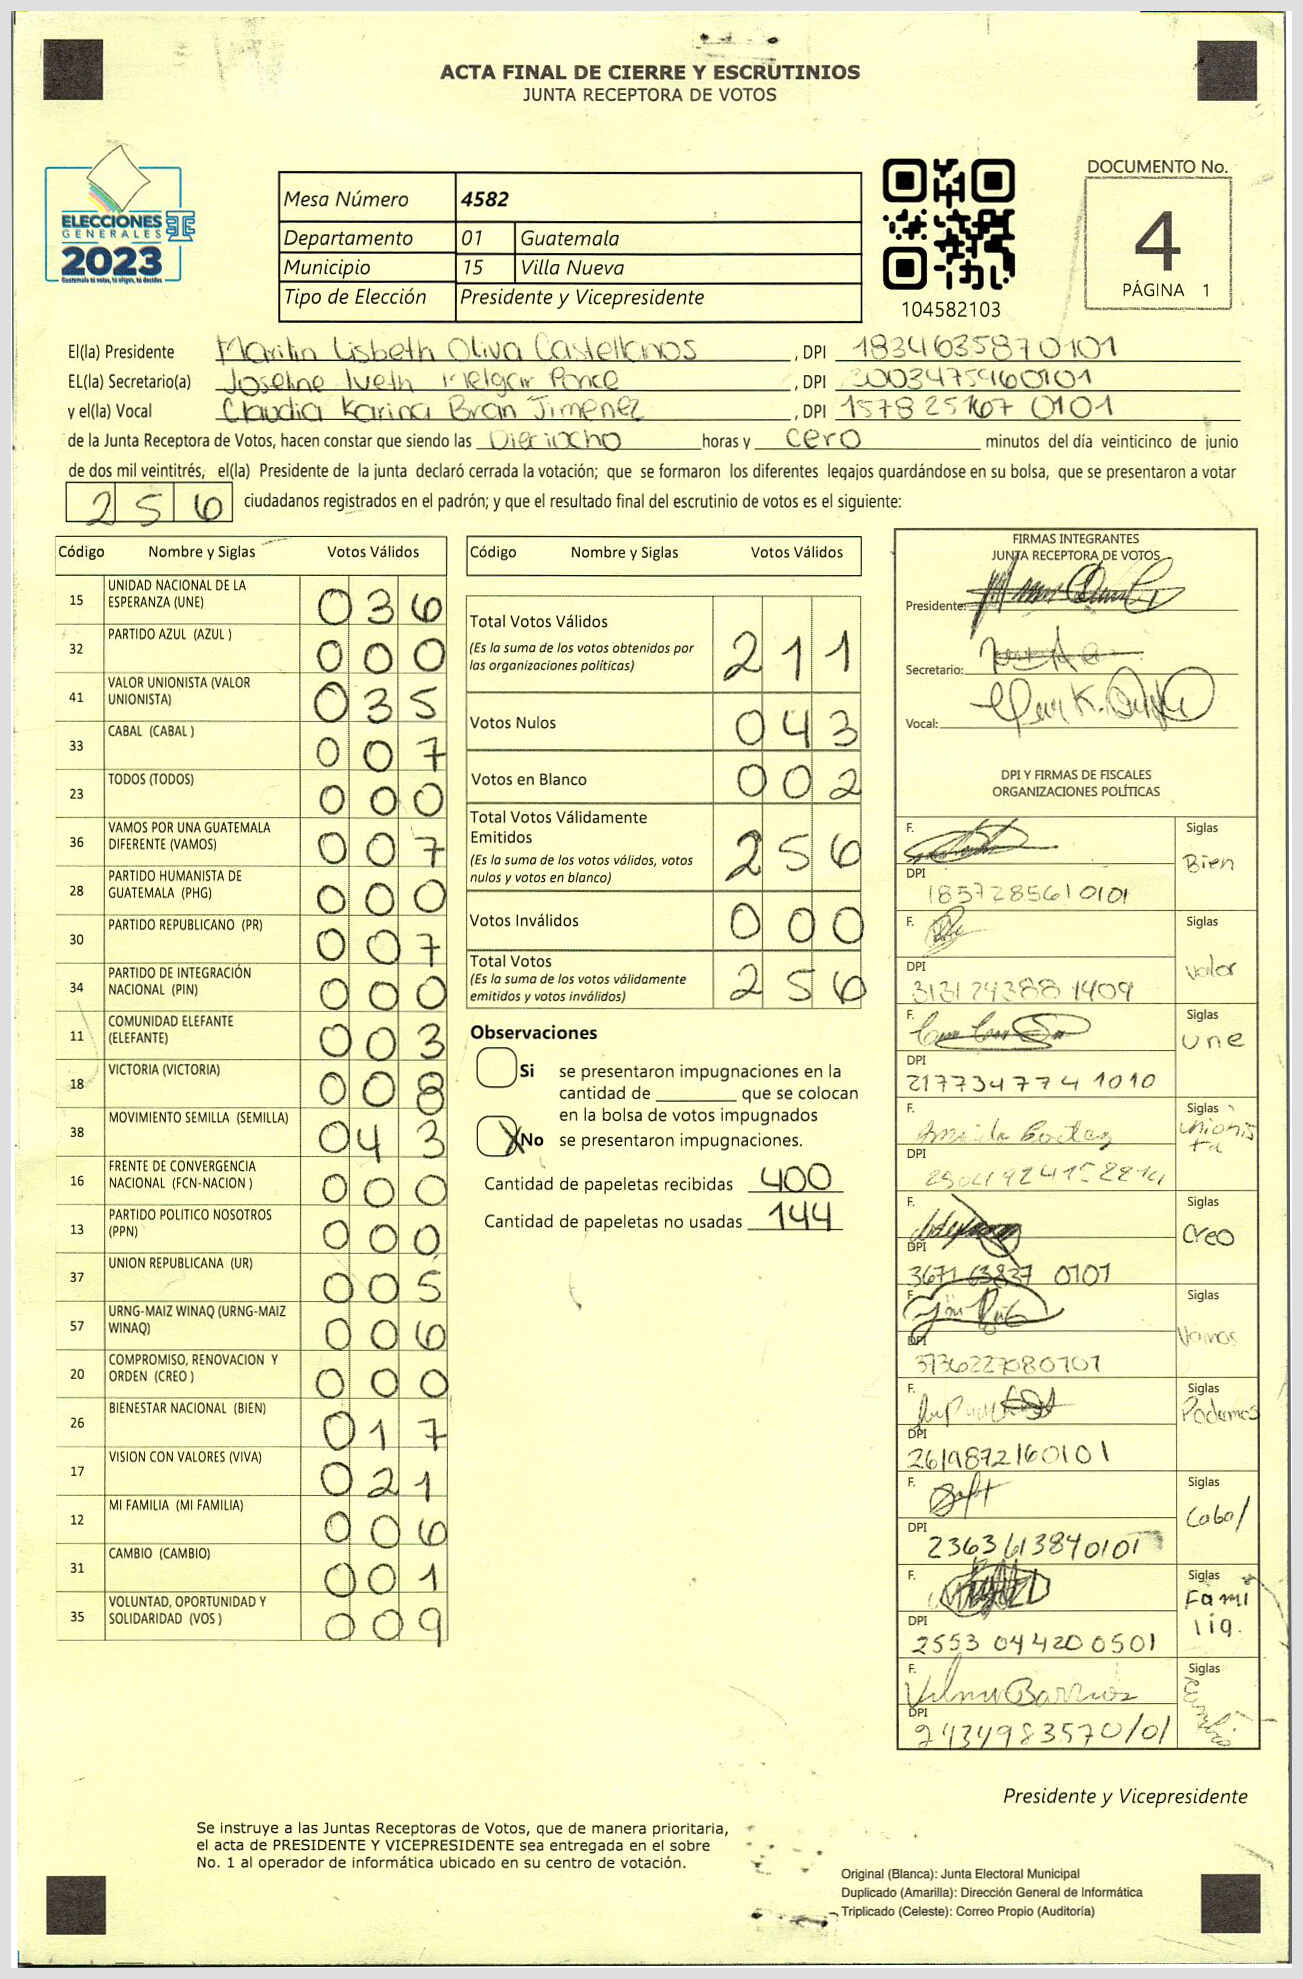 ACTA FINAL DE CIERRE Y ESCRUTINIOS
JUNTA RECEPTORA DE VOTOS
ELECCIONES
GENERALES
2023
Guatemala tú votas, tú eliges, tú decides
Mesa Número 4582
Departamento 01 Guatemala
Municipio 15 Villa Nueva
Tipo de Elección Presidente y Vicepresidente
104582103
DOCUMENTO No.
4
PÁGINA 1
El(la) Presidente Marilin Lisbeth Oliva Castellanos, DPI 1834635870101
EL(la) Secretario(a) Joseline Iveth Melgar Ponce, DPI 3003475960101
y el(la) Vocal Claudia Karina Bran Jimenez, DPI 0101
de la Junta Receptora de Votos, hacen constar que siendo las Dieciocho horas y cero minutos del día veinticinco de junio
de dos mil veintitrés, el(la) Presidente de la junta declaró cerrada la votación; que se formaron los diferentes legajos guardándose en su bolsa, que se presentaron a votar
256 ciudadanos registrados en el padrón; y que el resultado final del escrutinio de votos es el siguiente:
Código Nombre y Siglas Votos Válidos
15 UNIDAD NACIONAL DE LA ESPERANZA (UNE) 036
32 PARTIDO AZUL (AZUL ) 000
41 VALOR UNIONISTA (VALOR UNIONISTA) 035
33 CABAL (CABAL ) 007
23 TODOS (TODOS) 000
36 VAMOS POR UNA GUATEMALA DIFERENTE (VAMOS) 007
28 PARTIDO HUMANISTA DE GUATEMALA (PHG) 000
30 PARTIDO REPUBLICANO (PR) 007
34 PARTIDO DE INTEGRACIÓN NACIONAL (PIN) 000
11 COMUNIDAD ELEFANTE (ELEFANTE) 003
18 VICTORIA (VICTORIA) 008
38 MOVIMIENTO SEMILLA (SEMILLA) 043
16 FRENTE DE CONVERGENCIA NACIONAL (FCN-NACION ) 000
13 PARTIDO POLITICO NOSOTROS (PPN) 000
37 UNION REPUBLICANA (UR) 005
57 URNG-MAIZ WINAQ (URNG-MAIZ WINAQ) 006
20 COMPROMISO, RENOVACION Y ORDEN (CREO ) 000
26 BIENESTAR NACIONAL (BIEN) 017
17 VISION CON VALORES (VIVA) 021
12 MI FAMILIA (MI FAMILIA) 006
31 CAMBIO (CAMBIO) 001
35 VOLUNTAD, OPORTUNIDAD Y SOLIDARIDAD (VOS ) 009
Código Nombre y Siglas Votos Válidos
Total Votos Válidos 211
(Es la suma de los votos obtenidos por
las organizaciones políticas)
Votos Nulos 043
Votos en Blanco 002
Total Votos Válidamente
Emitidos 256
(Es la suma de los votos válidos, votos
nulos y votos en blanco)
Votos Inválidos 000
Total Votos 256
(Es la suma de los votos válidamente
emitidos y votos inválidos)
Observaciones
Si se presentaron impugnaciones en la
cantidad de ________ que se colocan
en la bolsa de votos impugnados
X No se presentaron impugnaciones.
Cantidad de papeletas recibidas 400
Cantidad de papeletas no usadas 144
FIRMAS INTEGRANTES
JUNTA RECEPTORA DE VOTOS
Presidente:
Secretario:
Vocal:
DPI Y FIRMAS DE FISCALES
ORGANIZACIONES POLÍTICAS
F. Siglas
Bien
DPI
1857285610101
F. Siglas
Valor
DPI
3131243881409
F. Siglas
Une
DPI
2177347741010
F. Siglas
unionis
ta
DPI
F. Siglas
Creo
DPI
3671 63837 0101
F. Siglas
Vamos
DPI
F. Siglas
Podemos
DPI
2619872160101
F. Siglas
Cabal
DPI
2363613840101
F. Siglas
Fami
lia.
DPI
2553 04420 0501
F. Vilma Barrios Siglas
Cambio
DPI
2434983570101
Presidente y Vicepresidente
Se instruye a las Juntas Receptoras de Votos, que de manera prioritaria,
el acta de PRESIDENTE Y VICEPRESIDENTE sea entregada en el sobre
No. 1 al operador de informática ubicado en su centro de votación.
Original (Blanca): Junta Electoral Municipal
Duplicado (Amarilla): Dirección General de Informática
Triplicado (Celeste): Correo Propio (Auditoría)